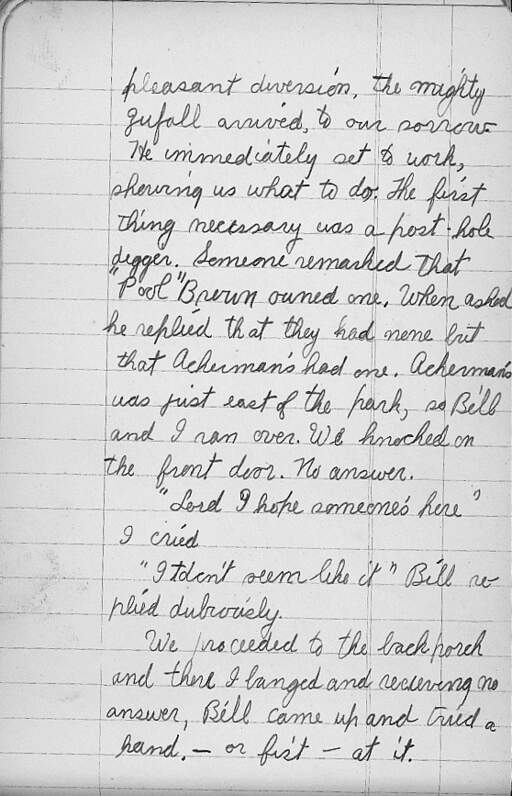 pleasant diversion, the mighty
Gufall arrived, to our sorrow-
He immediately set to work,
showing us what to do. The first
thing necessary was a post-hole
digger. Someone remarked that
"Pool" Brown owned one. When asked
he replied that they had none but
that Acherman's had one. Acherman's
was just east of the park, so Bill
and I ran over. We knocked on
the front door. No answer.
"Lord I hope someone's here"
I cried
"I tdon't seem like it" Bill re-
plied dubiously.
We proceeded to the back porch
and there I banged and recieving no
answer, Bill came up and tried a
hand. — or fist — at it.